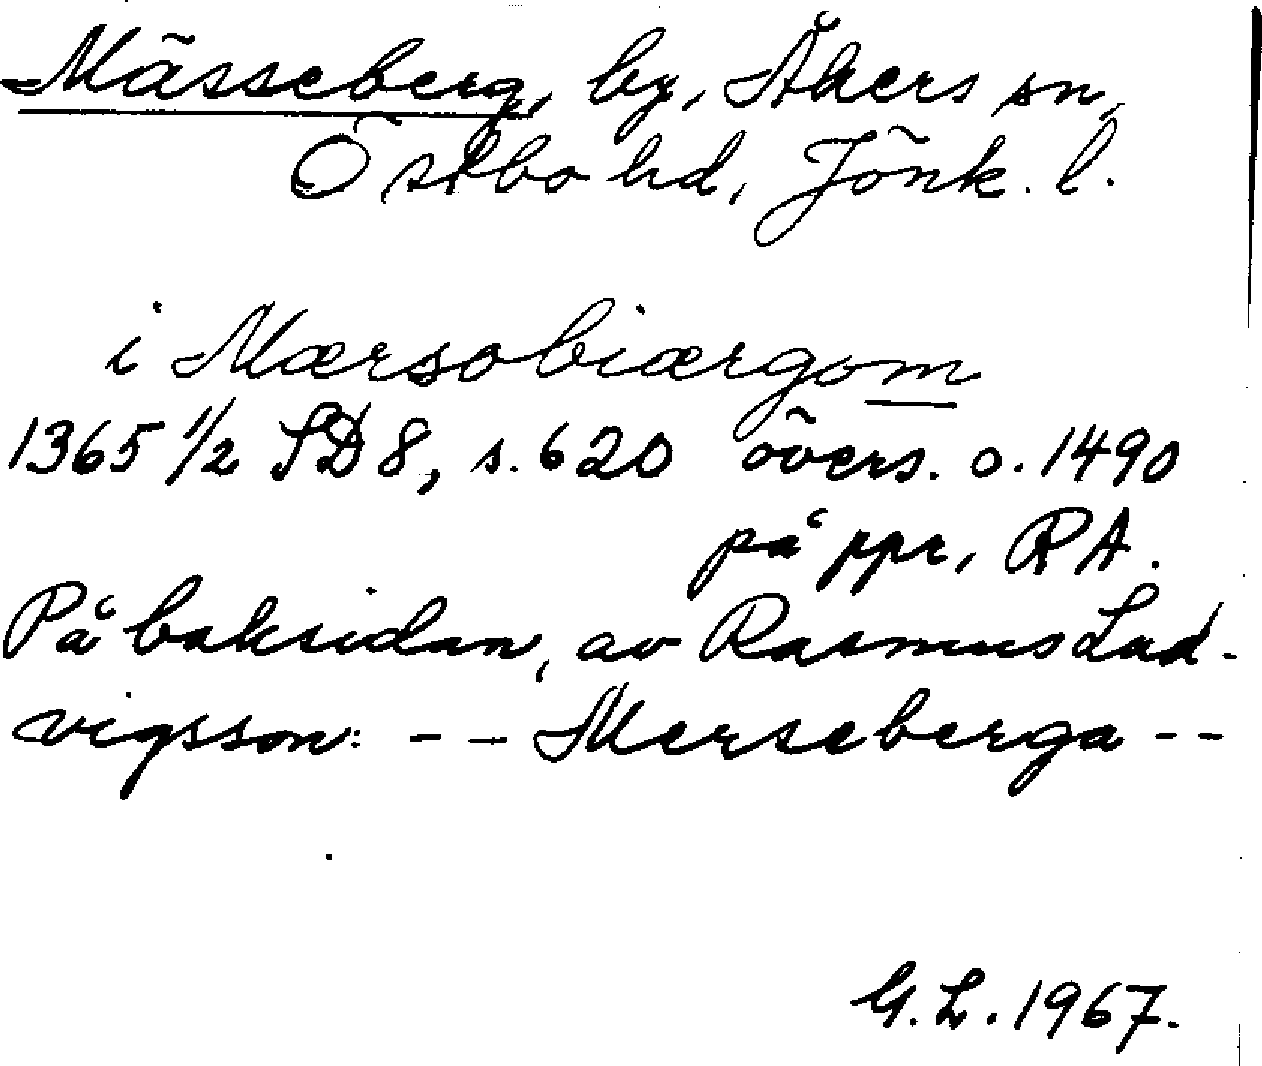 Mässeberg, by, Åkers sn,
Östbo hd, Jönk. l.
i Mærsobiærgom
1365 1/2 SD 8, s. 620 övers. o. 1490
på ppr, RA.
På baksidan, av Rasmus Lud-
vigsson: -- Merseberga --
G. L. 1967.